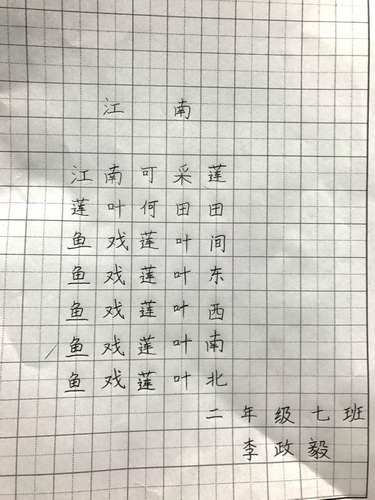 江南
江南可采莲
莲叶何田田
鱼戏莲叶间
鱼戏莲叶东
鱼戏莲叶西
鱼戏莲叶南
鱼戏莲叶北
二年级七班
李政毅